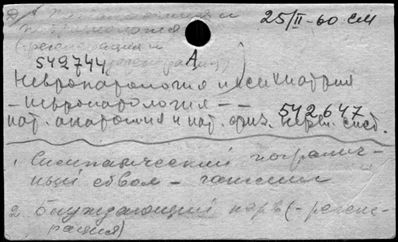 25/II-60 см
542744
А
Невропатология и психиатрия
- невропатология --
542647
пат. анатомия и пат. физ. нервн. сист.
1. Симпатический погранич-
ный ствол - ганглии
2. Блуждающий нерв (- регене-
рация)